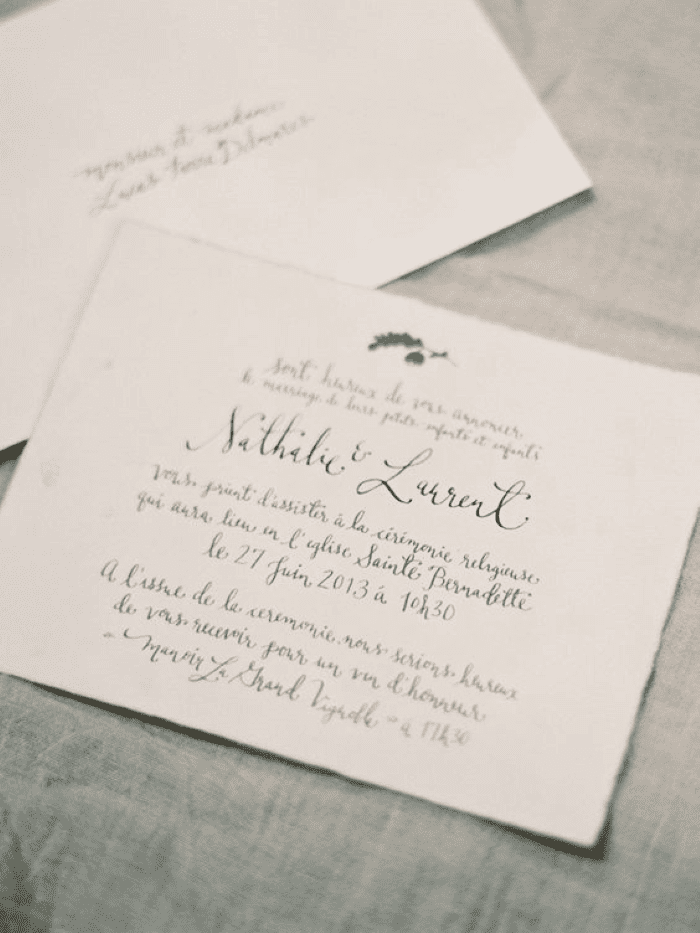 monsieur et madame
Lucas
sont heureux de vous annoncer
le marriage de leurs petits enfants et enfants
Nathalie & Laurent
vous prient d'assister à la cérémonie religieuse
qui aura lieu en l'eglise Sainte Bernadette
le 27 Juin 2013 à 10h30
A l'issue de la ceremonie, nous serions heureux
de vous recevoir pour un vin d'honneur
- Manoir La Grand - à 11h30